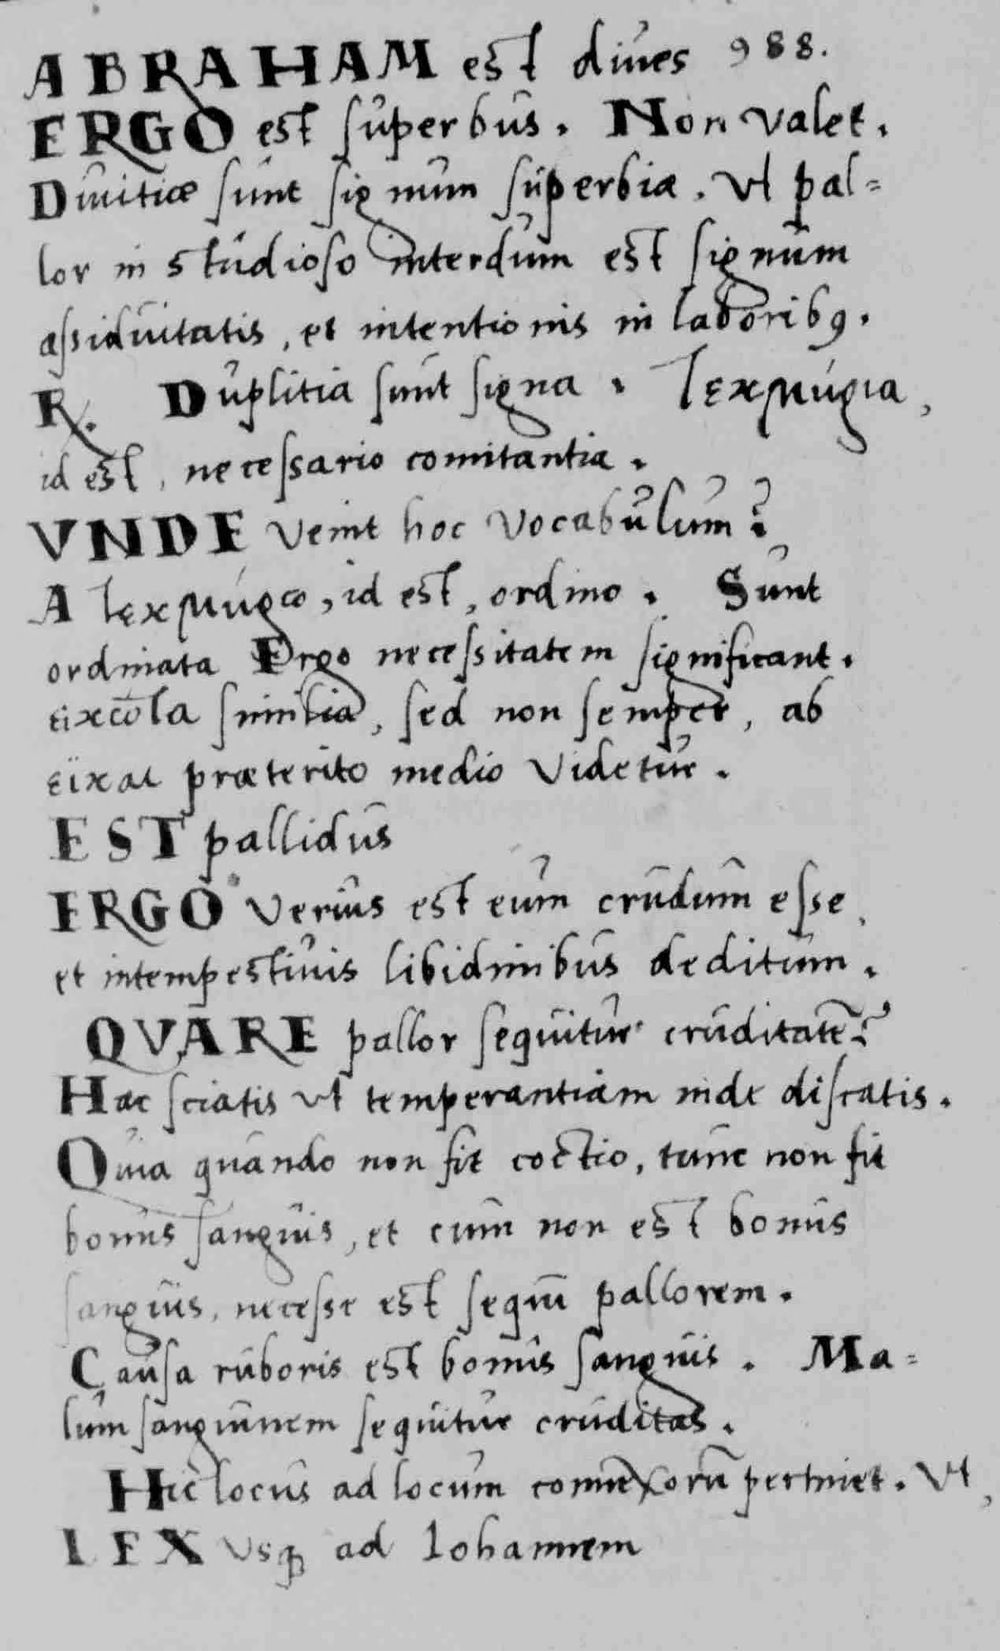 ABRAHAM est diues 988.
ERGO est superbus. Non valet.
Diuitiæ sunt signum superbiæ. Vt pal=
lor in studioso interdum est signum
assiduitatis, et intentionis in laboribꝰ.
R. Duplitia sunt signa. τεκμήρια,
id est, necessario comitantia.
VNDE venit hoc vocabulum?
A τεκμήρω, id est, ordino. Sunt
ordinata Ergo necessitatem significant.
similia, sed non semper, ab
præterito medio videtur.
EST pallidus
ERGO verius est eum crudum esse,
et intempestiuis libidinibus deditum.
QVARE pallor sequitur cruditatē?
Hæc sciatis vt temperantiam inde discatis.
Quia quando non fit coctio, tunc non fit
bonus sanguis, et cum non est bonus
sanguis, necesse est sequi pallorem.
Causa ruboris est bonus sanguis. Ma=
lum sanguinem sequitur cruditas.
Hic locus ad locum connexorū pertinet. Vt,
LEX vsqꝫ ad Iohannem